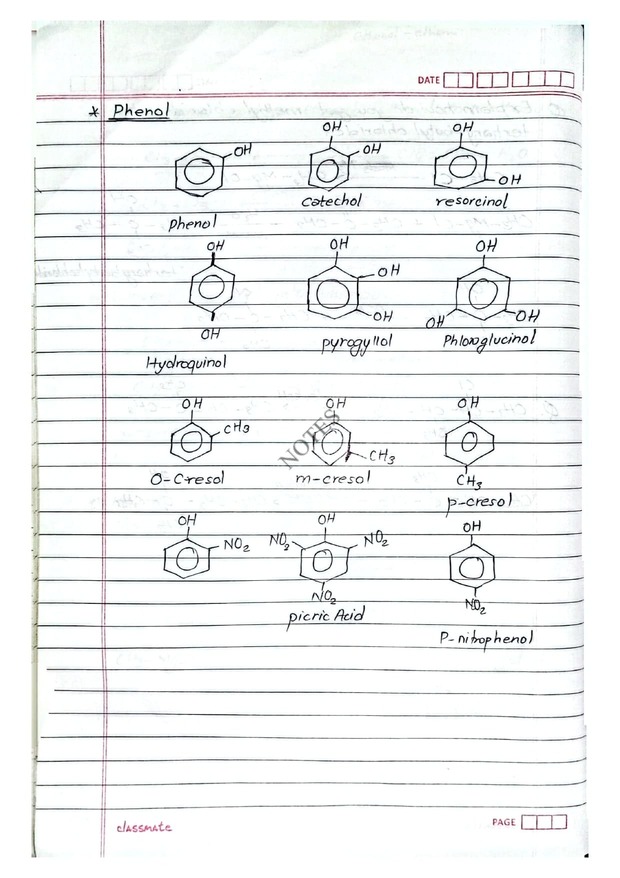 DATE
* Phenol
OH
Phenol
OH
OH
Catechol
OH
OH
resorcinol
OH
OH
Hydroquinol
OH
OH
OH
pyrogyllol
OH
OH
OH
Phloroglucinol
OH
CH3
O-Cresol
OH
CH3
m-cresol
OH
CH3
p-cresol
NOTES
OH
NO2
OH
NO2
NO2
NO2
picric Acid
OH
NO2
P-nitrophenol
classmate
PAGE